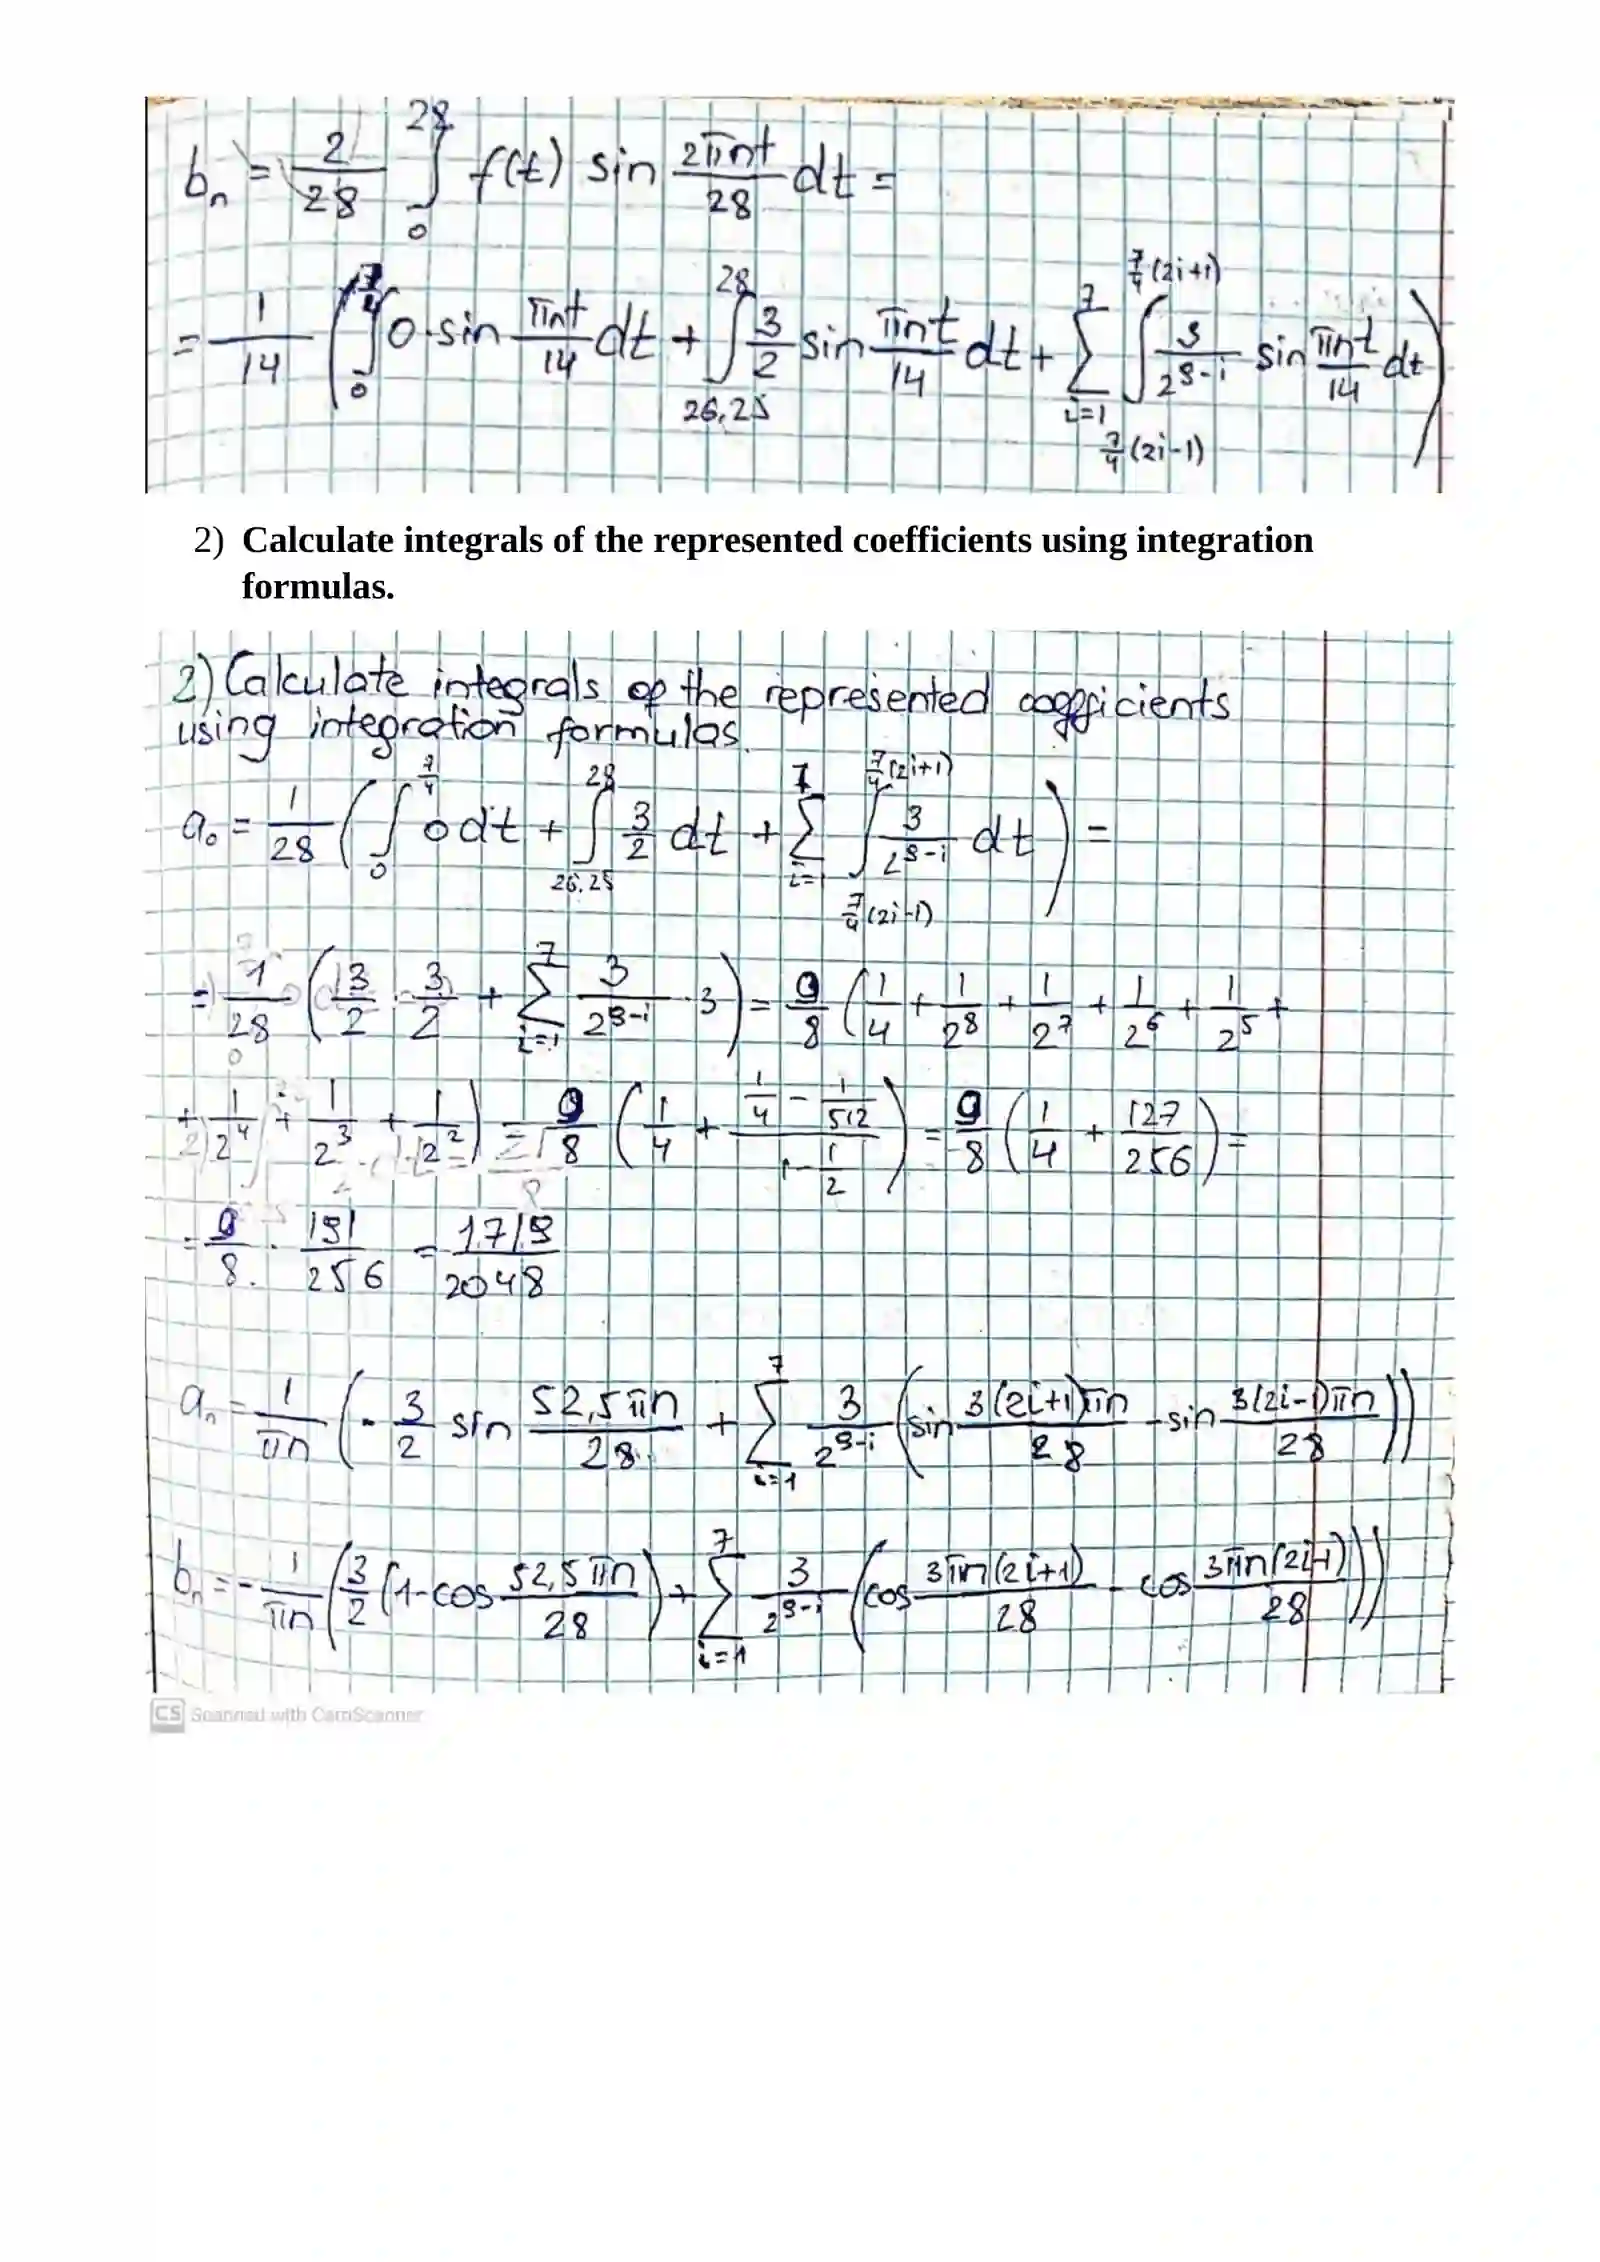 b_n = 2/28 ∫_0^28 f(t) sin 2πnt/28 dt =
= 1/14 ( ∫_0^{7/4} 0·sin πnt/14 dt + ∫_{26,25}^{28} 3/2 sin πnt/14 dt + Σ_{i=1}^7 ∫_{7/4(2i-1)}^{7/4(2i+1)} 3/2^{9-i} sin πnt/14 dt )
2) Calculate integrals of the represented coefficients using integration
formulas.
2) Calculate integrals of the represented coefficients
using integration formulas.
a_0 = 1/28 ( ∫_0^{7/4} 0 dt + ∫_{26,25}^{28} 3/2 dt + Σ_{i=1}^7 ∫_{7/4(2i-1)}^{7/4(2i+1)} 3/2^{9-i} dt ) =
= 1/28 ( 3/2 · 3/2 + Σ_{i=1}^7 3/2^{9-i} · 3 ) = 9/8 ( 1/4 + 1/2^8 + 1/2^7 + 1/2^6 + 1/2^5 +
+ 1/2^4 + 1/2^3 + 1/2^2 ) = 9/8 ( 1/4 + (1/4 - 1/512)/(1 - 1/2) ) = 9/8 ( 1/4 + 127/256 ) =
= 9/8 · 191/256 = 1719/2048
a_n = 1/πn ( - 3/2 sin 52,5πn/28 + Σ_{i=1}^7 3/2^{9-i} ( sin 3(2i+1)πn/28 - sin 3(2i-1)πn/28 ))
b_n = - 1/πn ( 3/2 (1-cos 52,5πn/28) + Σ_{i=1}^7 3/2^{9-i} ( cos 3πn(2i+1)/28 - cos 3πn(2i-1)/28 )))
CS Scanned with CamScanner